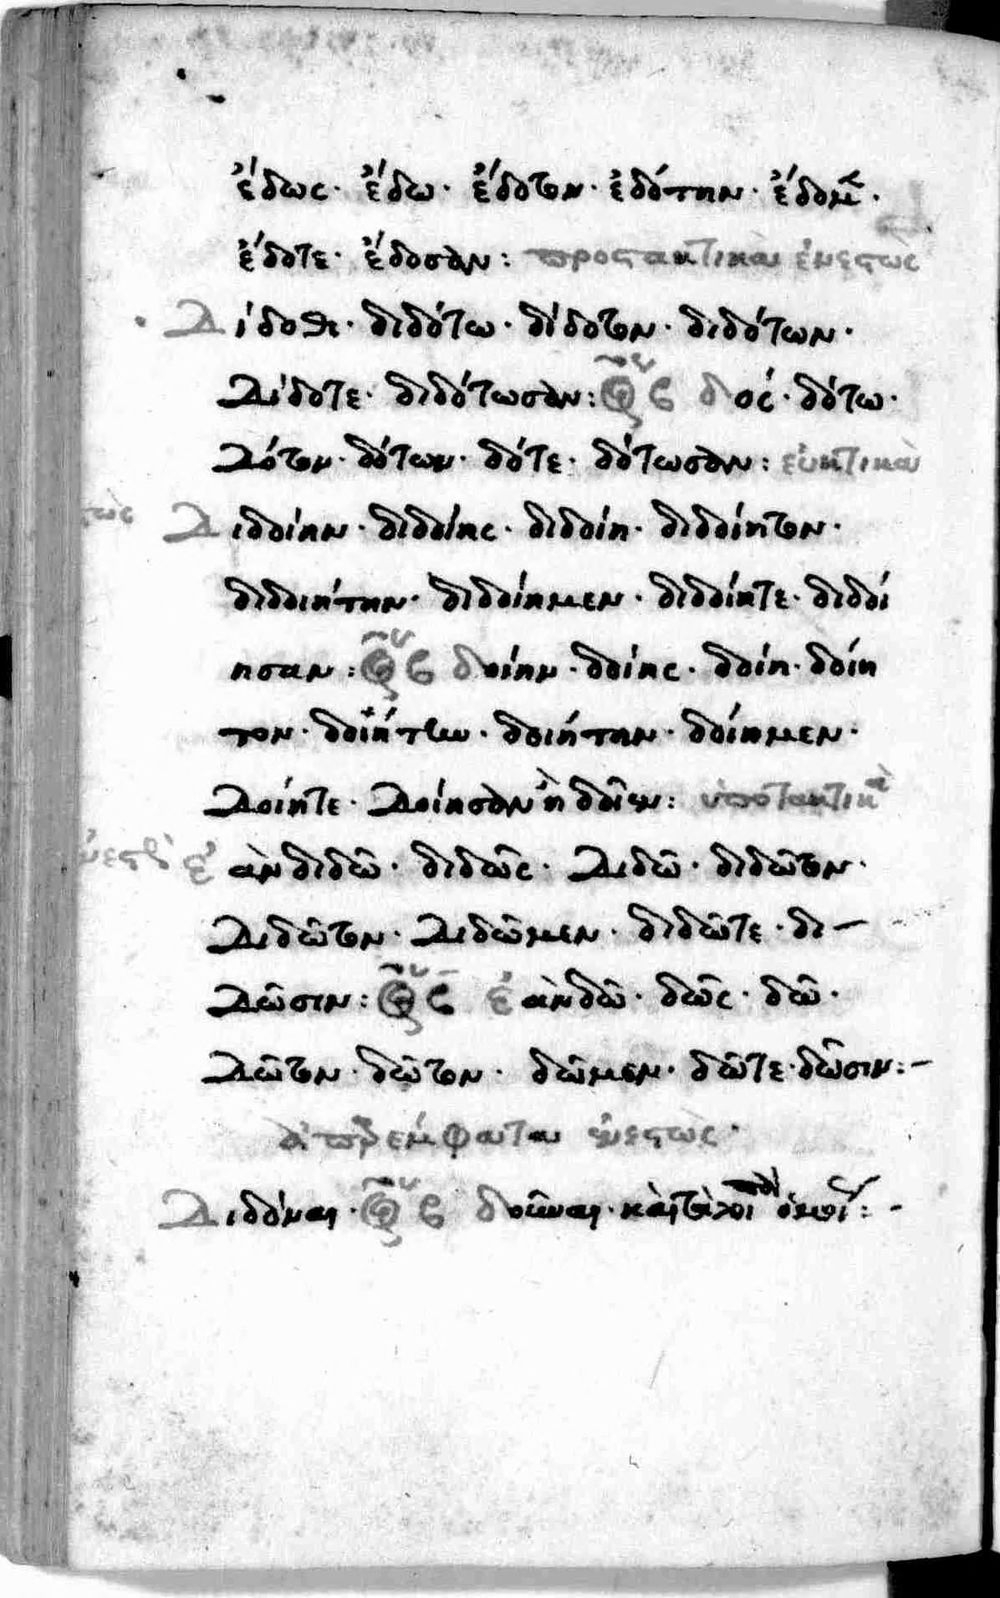 ἔδως· ἔδω· ἔδοτον· ἐδότην· ἔδομεν·
ἔδοτε· ἔδοσαν: προςτακτικὰ ἐνεςτὼς
Δίδοθι· διδότω· δίδοτον· διδότων·
Δίδοτε· διδότωσαν: β δός· δότω·
Δότον· δότων· δότε· δότωσαν: εὐκτικὰ
Διδοίην· διδοίης· διδοίη· διδοίητον·
διδοιήτην· διδοίημεν· διδοίητε· διδοί
ησαν: β δοίην· δοίης· δοίη· δοίη
τον· δοιήτην· δοίημεν·
Δοίητε· Δοίησαν ἢ δοῖεν: ὑποτακτικὰ
ἐὰν διδῶ· διδῶς· Διδῶ· διδῶτον·
Διδῶτον· Διδῶμεν· διδῶτε· δι–
Δῶσιν: β ἐὰν δῶ· δῶς· δῶ·
Δῶτον· δῶτον· δῶμεν· δῶτε· δῶσιν:–
ἀπαρέμφατα ἐνεςτὼς·
Διδόναι· β δοῦναι· καὶ τὰ λοιπὰ